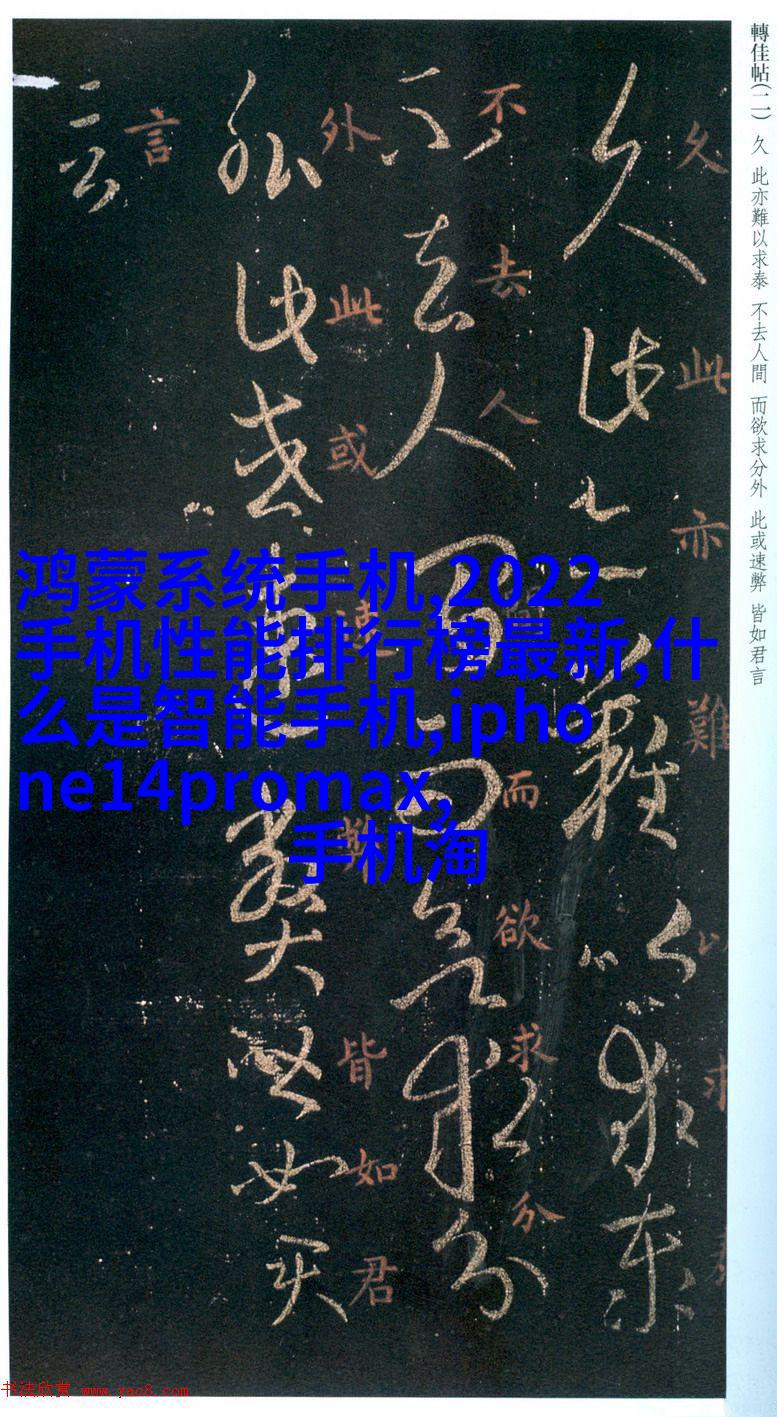 轉佳帖(二) 久 此亦難以求泰 不去人間 而欲求分外 此或速弊 皆如君言
久此亦難以求
不去人 而欲求分
外此或速弊皆如君
言
鸿蒙系统手机,2022
手机性能排行榜最新,什
么是智能手机,ipho
ne14promax,
手机淘
书法欣赏 www.yac8.com